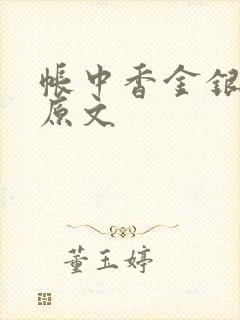 帐中香金银
原文
董玉婷